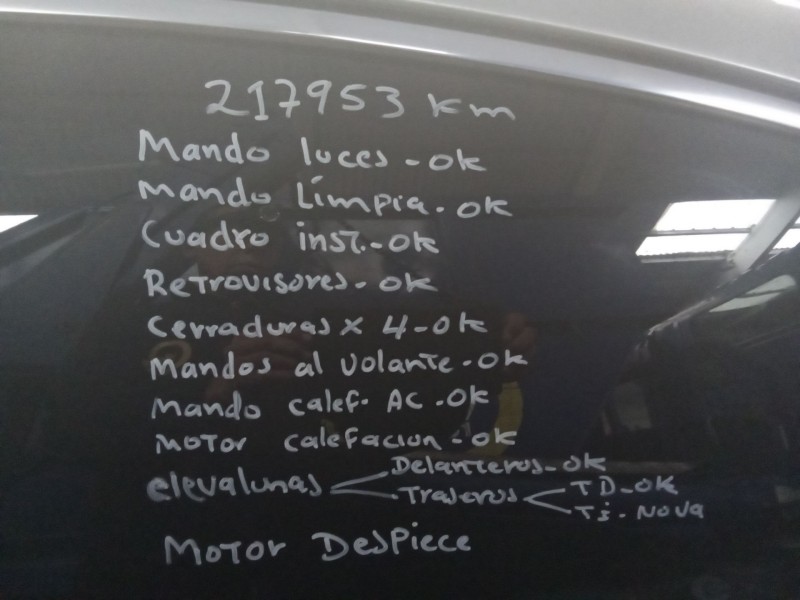 217953 km
Mando luces - ok
Mando Limpia. ok
Cuadro inst. - ok
Retrovisores - ok
Cerraduras x 4 - ok
Mandos al volante - ok
Mando calef. AC - ok
Motor calefacion - ok
elevalunas Delanteros - ok
Traseros TD - ok
Ti - NOVA
Motor Despiece